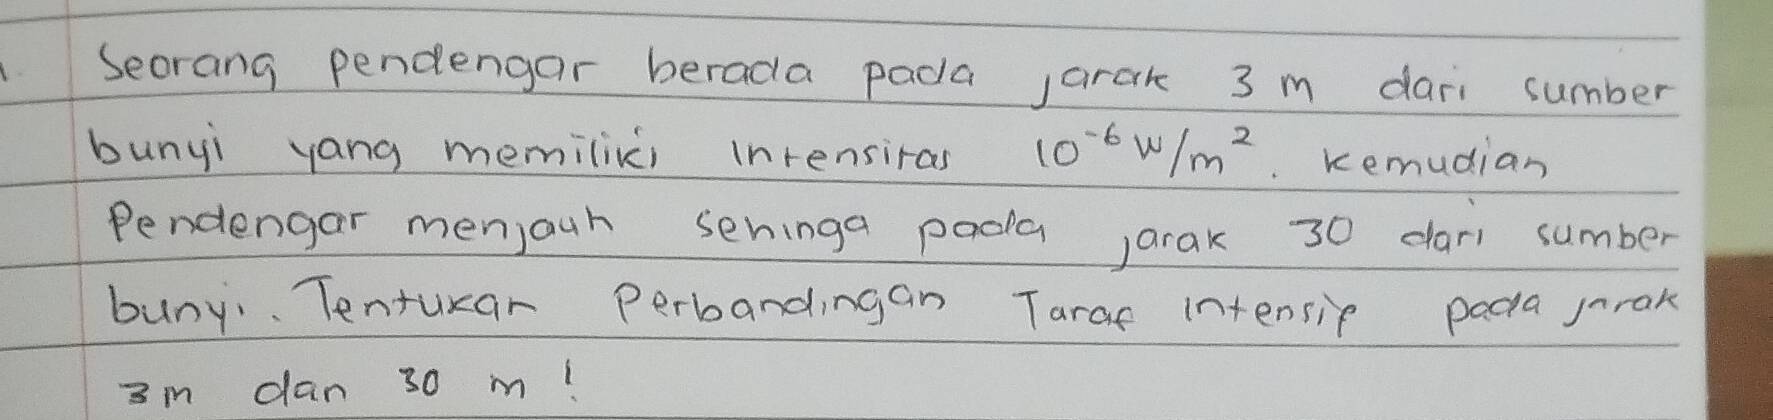 1. Seorang pendengar berada pada jarak 3 m dari sumber
bunyi yang memiliki Intensitas 10⁻⁶ W/m². Kemudian
Pendengar menjauh sehinga pada jarak 30 dari sumber
bunyi. Tentukan Perbandingan Taraf intensif pada jarak
3m dan 30 m!